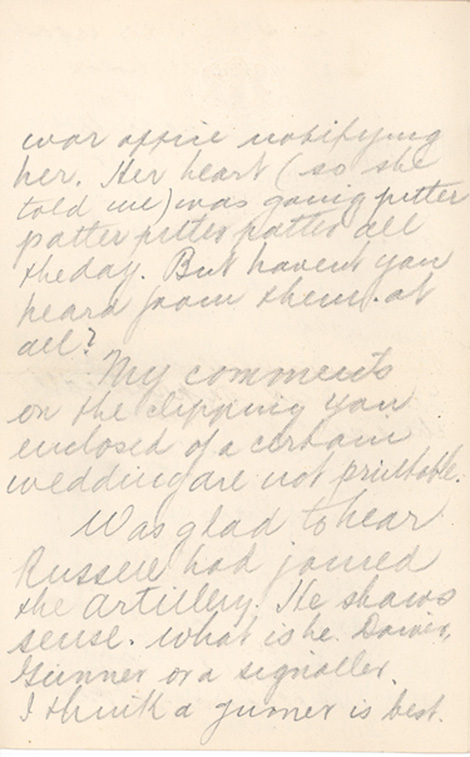 war office notifying
her. Her heart (so she
told me) was going pitter
patter pitter patter all
the day. But havent you
heard from them at
all?
My comments
on the clipping you
enclosed of a certain
wedding are not printable.
Was glad to hear
Russell had joined
the artillery. He shows
sense. What is he. Driver,
Gunner or a signaller.
I think a gunner is best.